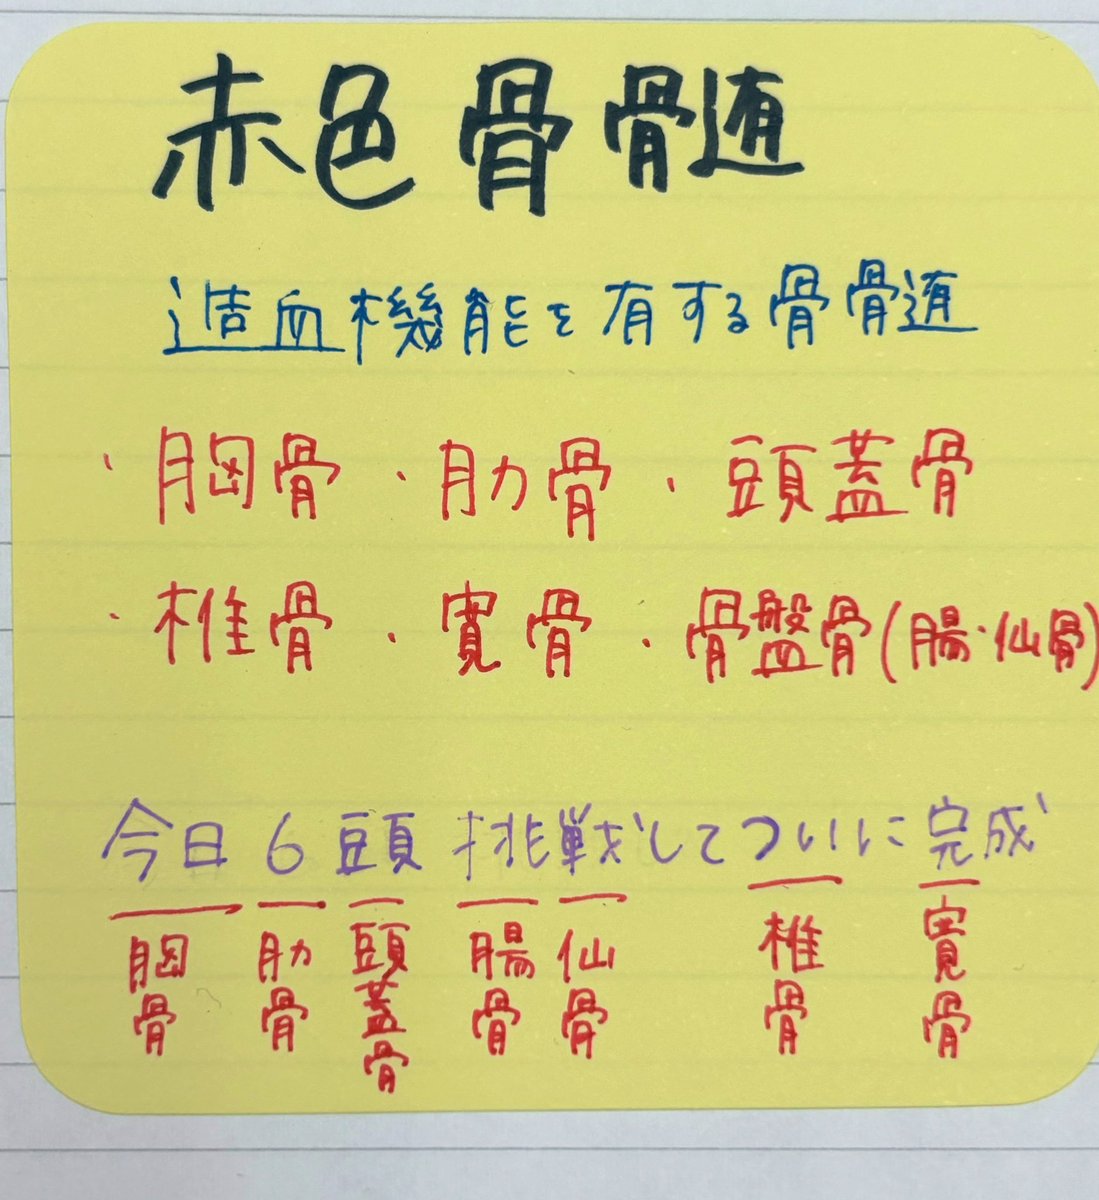 赤色骨髄
造血機能を有する骨髄
・胸骨・肋骨・頭蓋骨
・椎骨・寛骨・骨盤骨(腸・仙骨)
今日6頭挑戦してついに完成
胸骨 肋骨 頭蓋骨 腸骨 仙骨 椎骨 寛骨